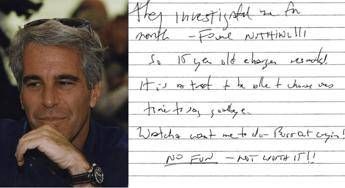 They investigated me for
month – Found NOTHING!!!
So 15 year old charges resulted.
It is a treat to be able to choose
time to say goodbye.
Watcha want me to do – Bust out cryin!!
NO FUN – NOT WORTH IT!!